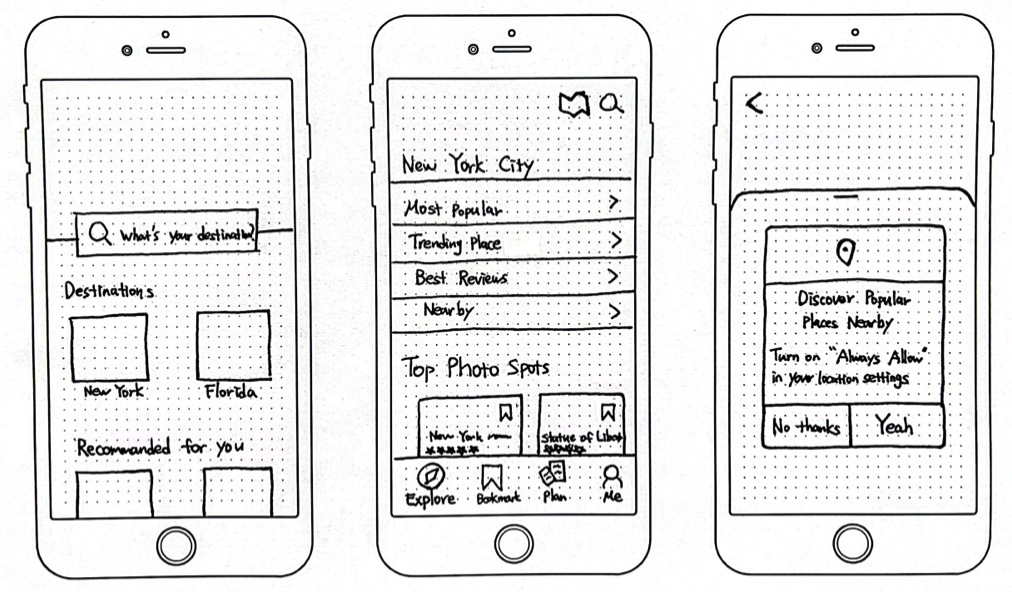 What's your destination
Destinations
New York
Florida
Recommanded for you
New York City
Most Popular
Trending Place
Best Reviews
Nearby
Top Photo Spots
New York
Statue of Libat
Explore
Bookmark
Plan
Me
Discover Popular
Places Nearby
Turn on "Always Allow"
in your location settings
No thanks
Yeah